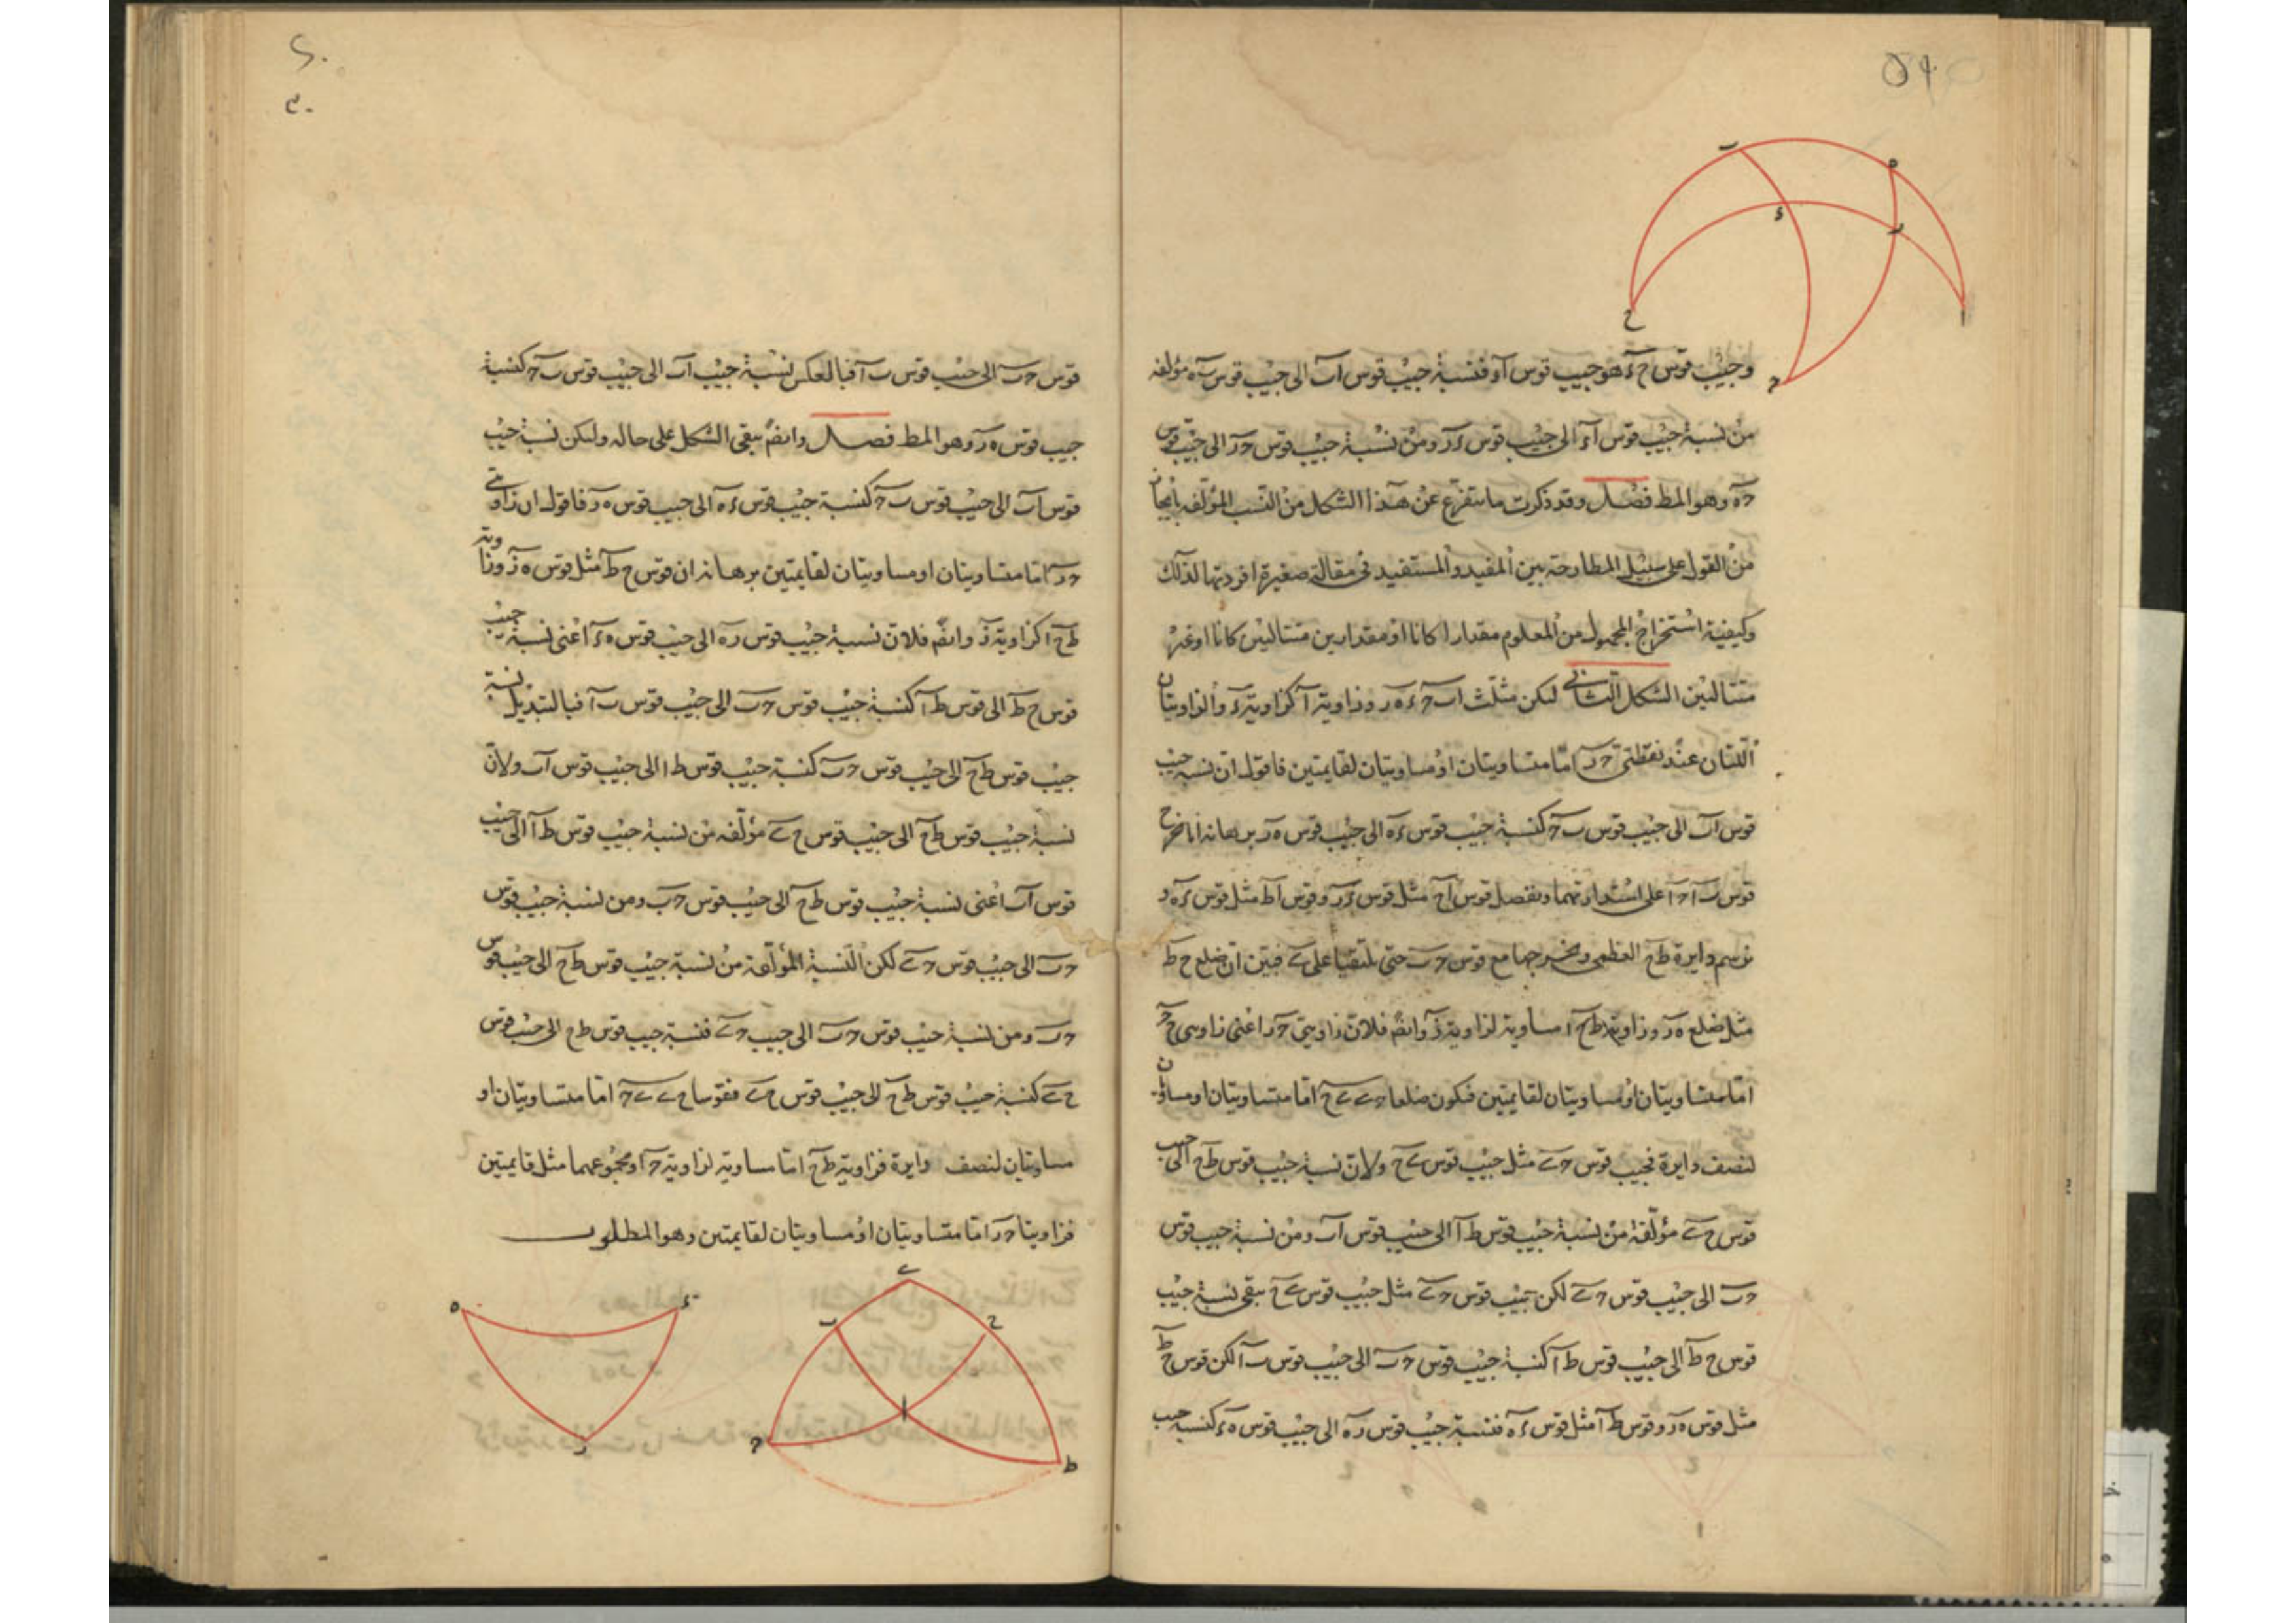 وجيب قوس ح ء هو جيب قوس آء فنسبة جيب قوس آب الى جيب قوس به مؤلفه
من نسبة جيب قوس آء الى جيب قوس ءر ومن نسبة جيب قوس حر الى جيب قوس
حه وهو المط فصل وقد ذكرت ما يتفرع عن هذا الشكل من النسب المؤلفه
من القول على سبيل المطارحة بين المفيد والمستفيد فى مقالة صغيرة افردتها لذلك
وكيفية استخراج المجهول من المعلوم مقدارا كانا او مقدارين متتاليين كانا او غير
متتاليين الشكل الثانى ليكن مثلث ابح ءهر وزاوية آ كزاوية ء والزاويتان
اللتان عند نقطتى حر اما متساويتان او مساويتان لقايمتين فاقول ان نسبة جيب
قوس آب الى جيب قوس بح كنسبة جيب قوس ءه الى جيب قوس هر برهانه انا نخرج
قوس بآ حآ على استدارتهما ونفصل قوس آح مثل قوس ءر وقوس آط مثل قوس ءه و
نرسم دايرة طح العظمى ونخرجها مع قوس حب حتى يلتقيا على ى فبين ان ضلع ح ط
مثل ضلع هر وزاوية طح ا مساوية لزاوية ر وايضا فلان زاويتى حر اعنى زاويتى ح ح
اما متساويتان او مساويتان لقايمتين فيكون ضلعا حى ى ح اما متساويتان او مساويان
لنصف دايرة فجيب قوس حى مثل جيب قوس ى ح ولان نسبة جيب قوس طح الى جيب
قوس حى مؤلفة من نسبة جيب قوس طآ الى جيب قوس آب ومن نسبة جيب قوس
حب الى جيب قوس حى لكن جيب قوس حى مثل جيب قوس ى ح يبقى نسبة جيب
قوس ح ط الى جيب قوس طآ كنسبة جيب قوس حب الى جيب قوس بآ لكن قوس ح ط
مثل قوس هر وقوس طآ مثل قوس ءه فنسبة جيب قوس ره الى جيب قوس هء كنسبة جيب
قوس حب الى جيب قوس بآ فبالعكس نسبة جيب اب الى جيب قوس بح كنسبة
جيب قوس هر وهو المط فصل وايضا يبقى الشكل على حاله وليكن نسبة جيب
قوس آب الى جيب قوس بح كنسبة جيب قوس ءه الى جيب قوس هر فاقول ان زاويتى
حر اما متساويتان او مساويتان لقايمتين برهانه ان قوس ح ط مثل قوس هر وزاوية
طح ا كزاوية ر وايضا فلان نسبة جيب قوس ره الى جيب قوس هء اعنى نسبة جيب
قوس ح ط الى قوس طآ كنسبة جيب قوس حب الى جيب قوس بآ فبالتبديل نسبة
جيب قوس طح الى جيب قوس حب كنسبة جيب قوس طا الى جيب قوس آب ولان
نسبة جيب قوس طح الى جيب قوس ح ى مؤلفه من نسبة جيب قوس طآ الى جيب
قوس آب اعنى نسبة جيب قوس طح الى جيب قوس حب ومن نسبة جيب قوس
حب الى جيب قوس حى لكن النسبة المؤلفة من نسبة جيب قوس طح الى جيب قوس
حب ومن نسبة جيب قوس حب الى جيب حى فنسبة جيب قوس طح الى جيب قوس
ح ى كنسبة جيب قوس طح الى جيب قوس حى فقوسا حى ى ح اما متساويتان او
مساويتان لنصف دايرة فزاوية طح اما مساوية لزاوية حآ او مجموعهما مثل قايمتين
فزاويتا حر اما متساويتان او مساويتان لقايمتين وهو المطلوب